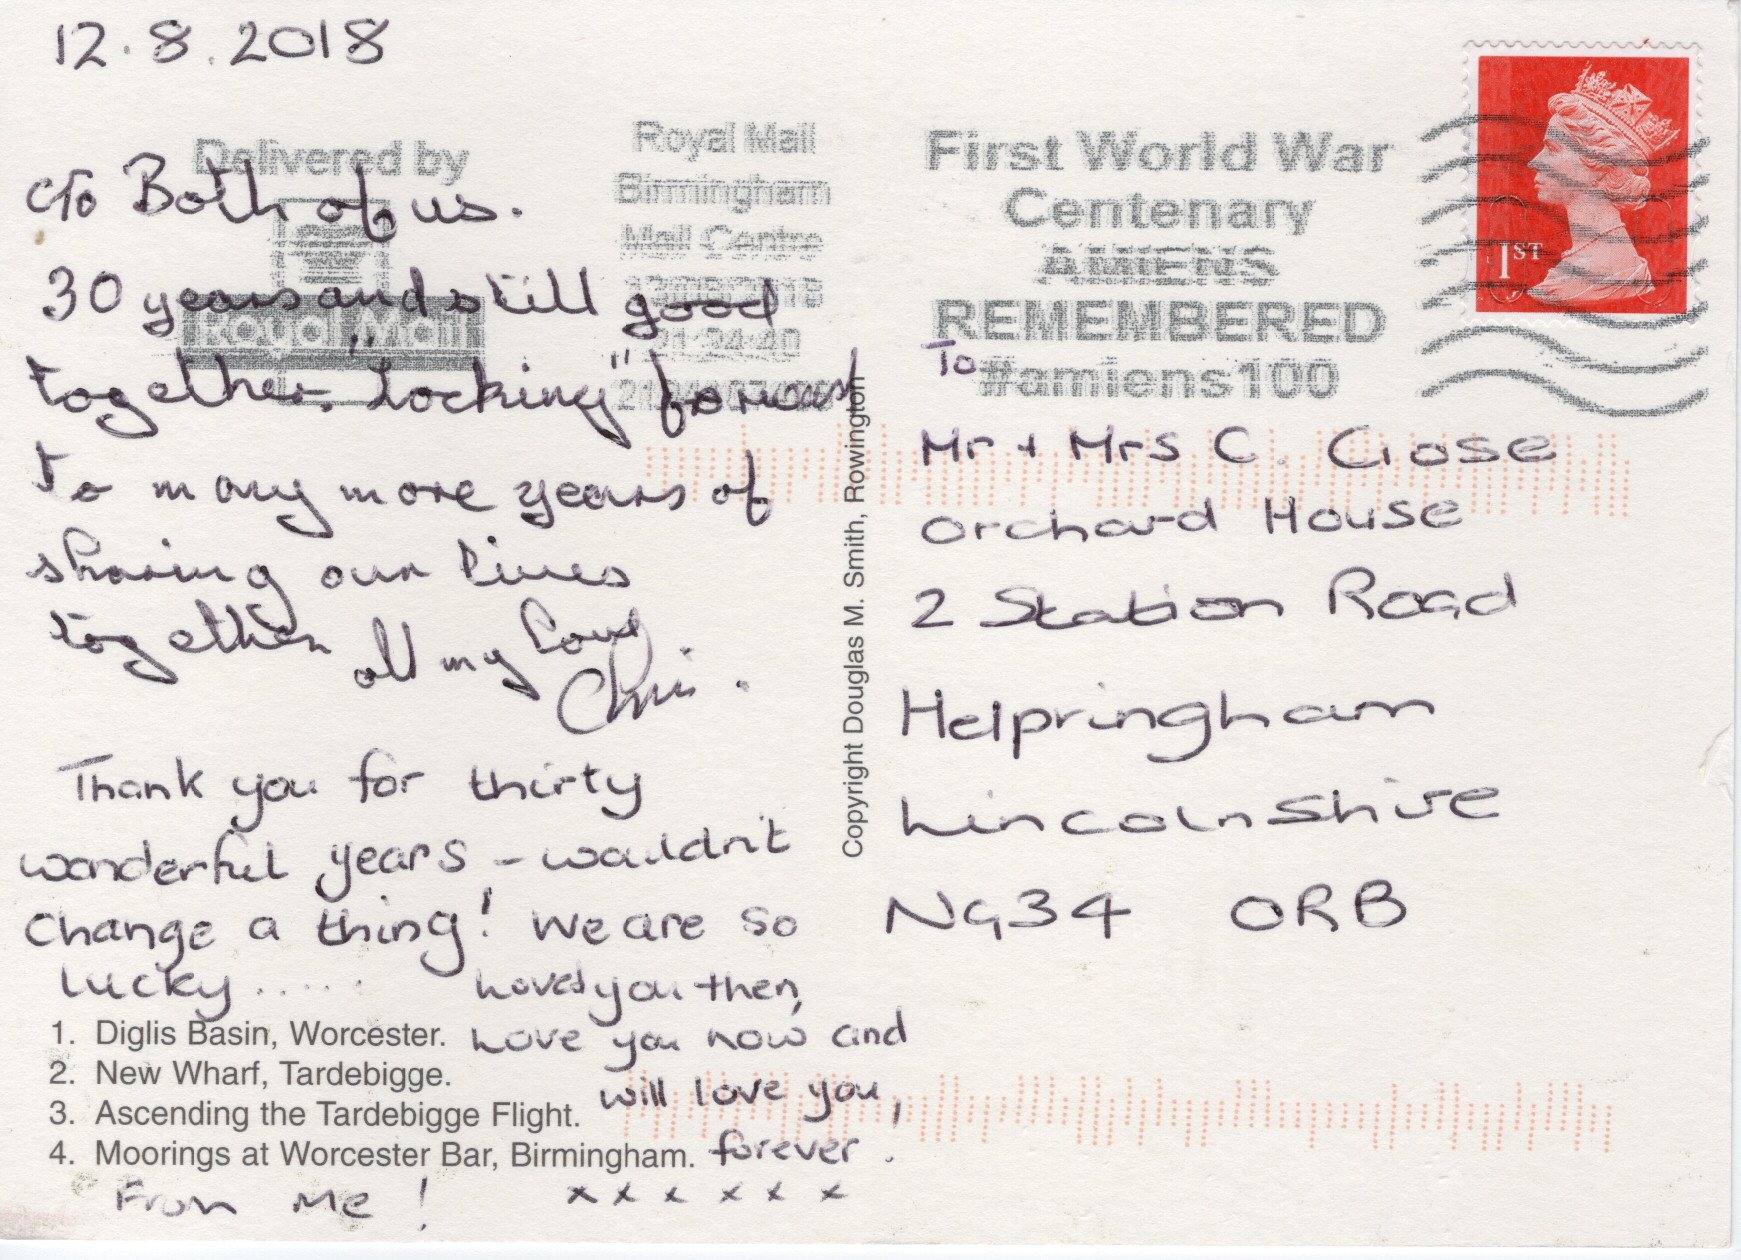 12.8.2018
Delivered by
Royal Mail
Royal Mail
Birmingham
Mail Centre
First World War
Centenary
AMIENS
REMEMBERED
#amiens100
1ST
To Both of us.
30 years and still good
together. "Locking" forward
to many more years of
sharing our lives
together all my love
Chris.
Thank you for thirty
wonderful years - wouldn't
change a thing! We are so
lucky.....
Loved you then,
Love you now and
will love you,
forever.
From Me! x x x x x x
1. Diglis Basin, Worcester.
2. New Wharf, Tardebigge.
3. Ascending the Tardebigge Flight.
4. Moorings at Worcester Bar, Birmingham.
Copyright Douglas M. Smith, Rowington
To
Mr + Mrs C. Close
Orchard House
2 Station Road
Helpringham
Lincolnshire
NG34 0RB